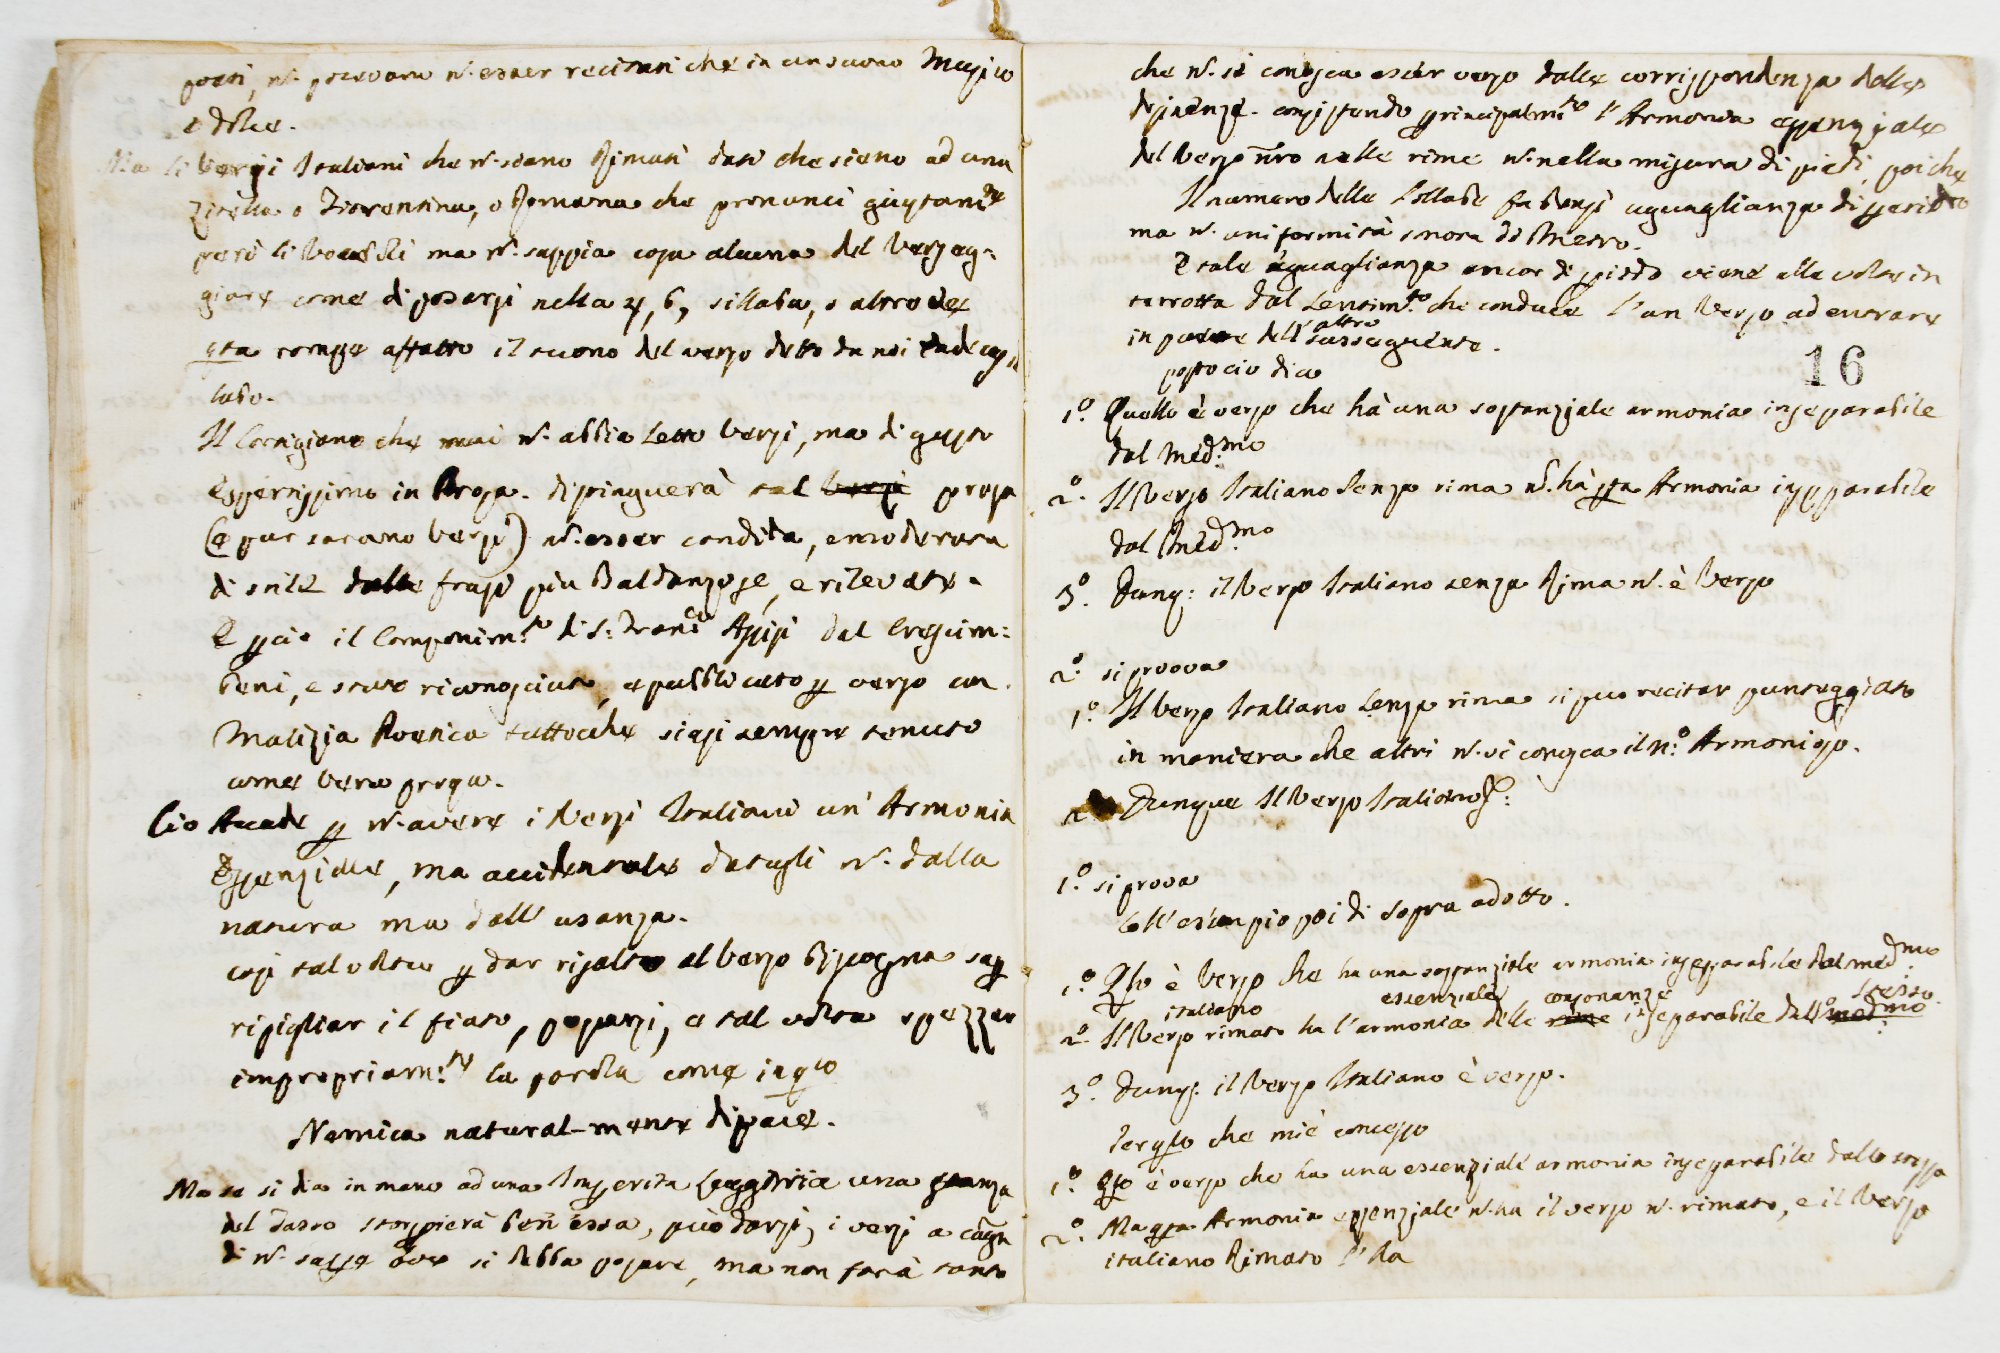 posti, n. potevano n. esser recitati che in un suono Musico
e dolce.
Ma li versi Italiani che n. siano Rimati dati che sieno ad una
Zitella o Fiorentina, o Romana che pronunci giustam.te
però li vocaboli ma n. sappia cosa alcuna del verseg=
giare come di posarsi nella 4, 6, sillaba, o altro che
qta rompe affatto il suono del verso detto da noi endecasil
labo.
Il Cortigiano che mai n. abbia Letto versi, ma di gusto
espertissimo in Prosa. distinguerà tal versi prosa
(e pur sarano versi) n. esser condita, e moderata
di stile dalle frasi più Baldanzose, e rilevate.
E pciò il Componim.to di S: Franc.o Assisi dal Crescim=
beni, e stato riconosciuto, e pubblicato p verso con
Malizia Poetica tuttoche siasi sempre tenuto
come vera prosa.
Ciò Accade p n. avere i versi Italiani un' Armonia
Essenziale, ma accidentale datagli n. dalla
natura ma dall' usanza.
così tal volta p dar risalto al verso Bisogna sap
ripigliar il fiato, posarsi, e tal volta spezzar
impropriam.te la parola come in qto
Nemica natural-mente di pace.
Ma se si dia in mano ad una Imperita Leggitrice una stanza
del Tasso storpierà ben essa, può darsi, i versi a cagn
di n. sapse dove si debba posare, ma non farà tanto
che n. si conosca esser verso dalla corrispondenza delle
desinenze. consistendo principalm.te l'Armonia essenziale
del verso nro nelle rime n. nella misura di piedi, poiche
Il numero delle Sillabe fa bensi uguaglianza di periodo
ma n. uniformità sonora di Metro.
E tale aguaglianza ancor di piedi viene alle volte in
terrotta dal Sentim.to che conduce l'un verso ad entrare
in parte dell' altro sussequente.
16
posto cio dico
1.o Quello è verso che hà una sostanziale armonia inseparabile
dal Med.mo
2.o Il Verso Italiano Senza rima n. hà qta Armonia inseparabile
dal Med.mo
3.o Dunq: il Verso Italiano senza Rima n. è Verso
2.o si proova
1.o Il verso Italiano senza rima si puo recitar punteggiato
in maniera che altri n. vi conosca il n.o Armonioso.
2. Dunque Il Verso Italiano &:
1.o si prova
Coll' esempio poi di sopra adotto.
1.o Qto è Verso che ha una sostanziale armonia inseparabile dal med.mo
italiano essenziale consonanze stesso
2.o Il Verso rimato ha l'armonia delle rime inseparabile dallo med.mo
3.o Dunq: il Verso Italiano è verso.
Per qto che mi è concesso
1.o Qto è verso che ha una essenziale armonia inseparabile dallo stesso
2.o Ma qta Armonia essenziale n. ha il verso n. rimato, e il Verso
italiano Rimato l'ha